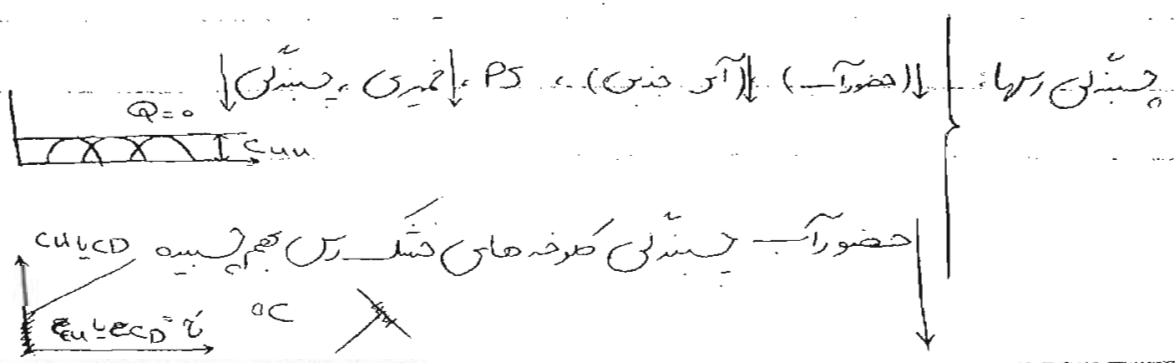 چسبندگی رسها: ↓(حضور آب) ↓(آتر ...) ، PS ، ↓خمیری ، چسبندگی↓
Q=0
Cuu
حضور آب چسبندگی کلوخه های خشک رس بهم چسبیده
CU یا CD